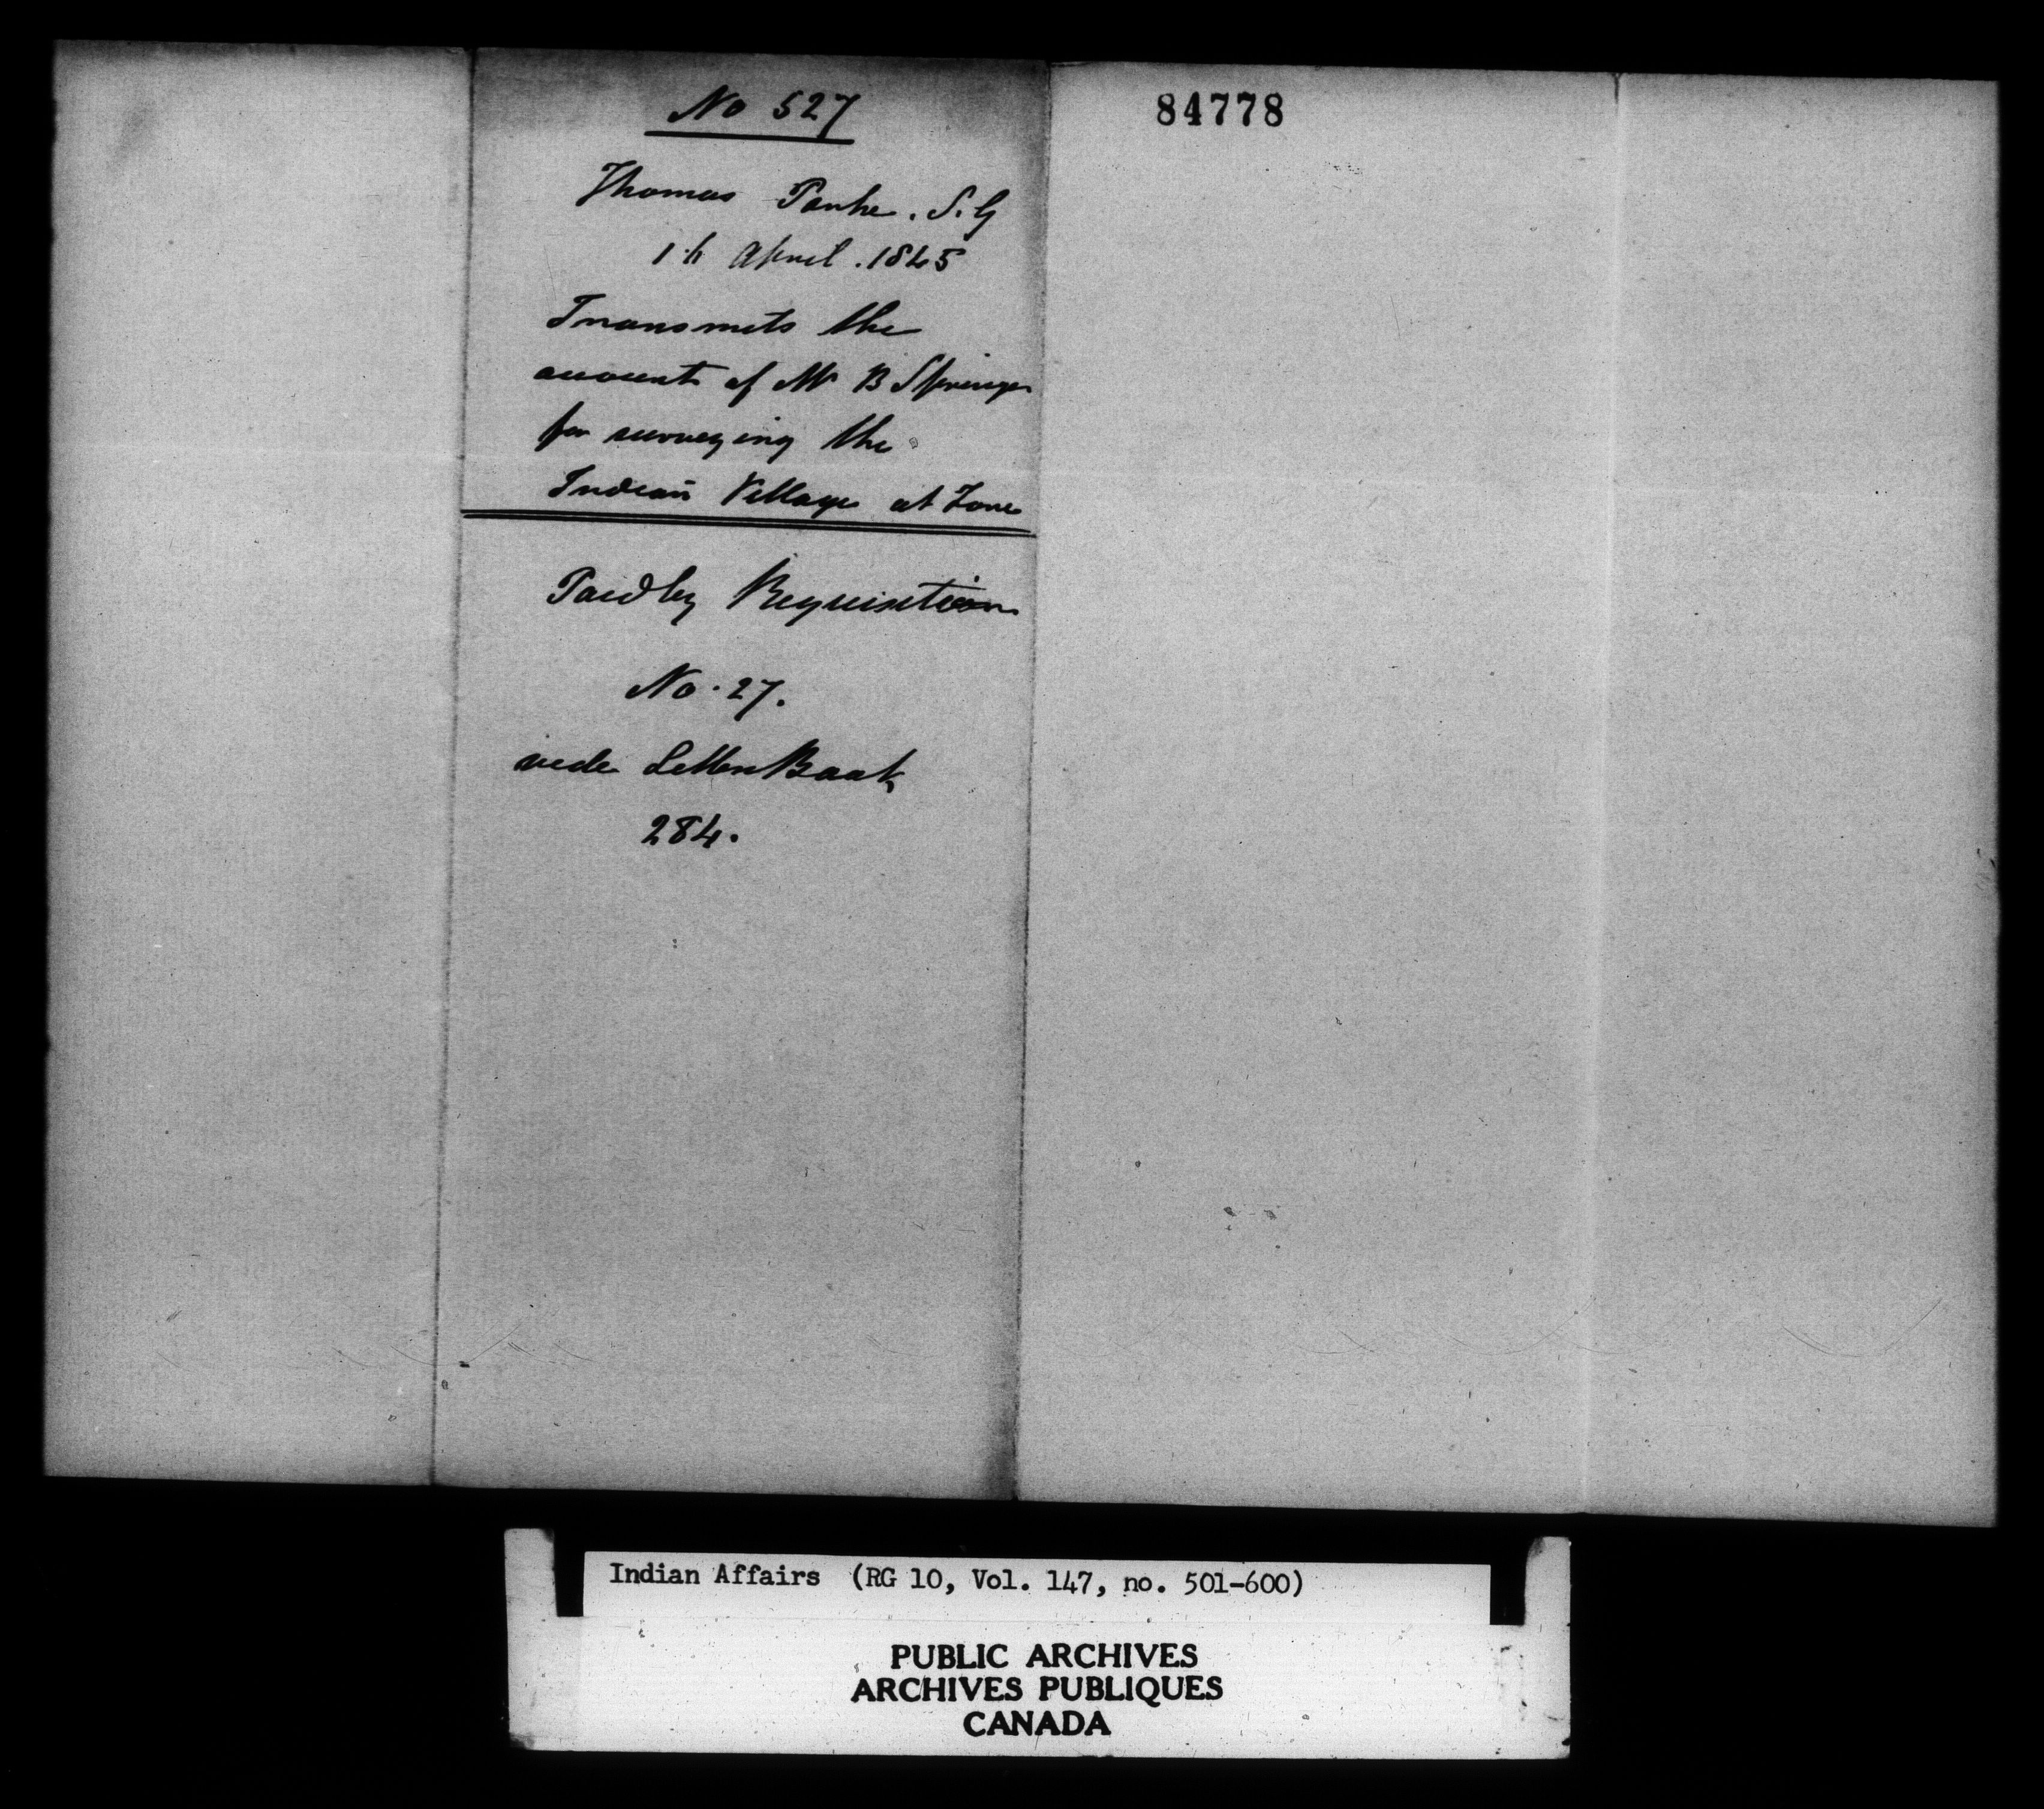 No 527
Thomas Parke. S.G
April. 1845
Transmits the
account of Mr B Springer
for surveying the
Indian Village at Zone
Paid by Requisition
No. 27.
vide Letter Book
284.
84778
Indian Affairs (RG 10, Vol. 147, no. 501-600)
PUBLIC ARCHIVES
ARCHIVES PUBLIQUES
CANADA